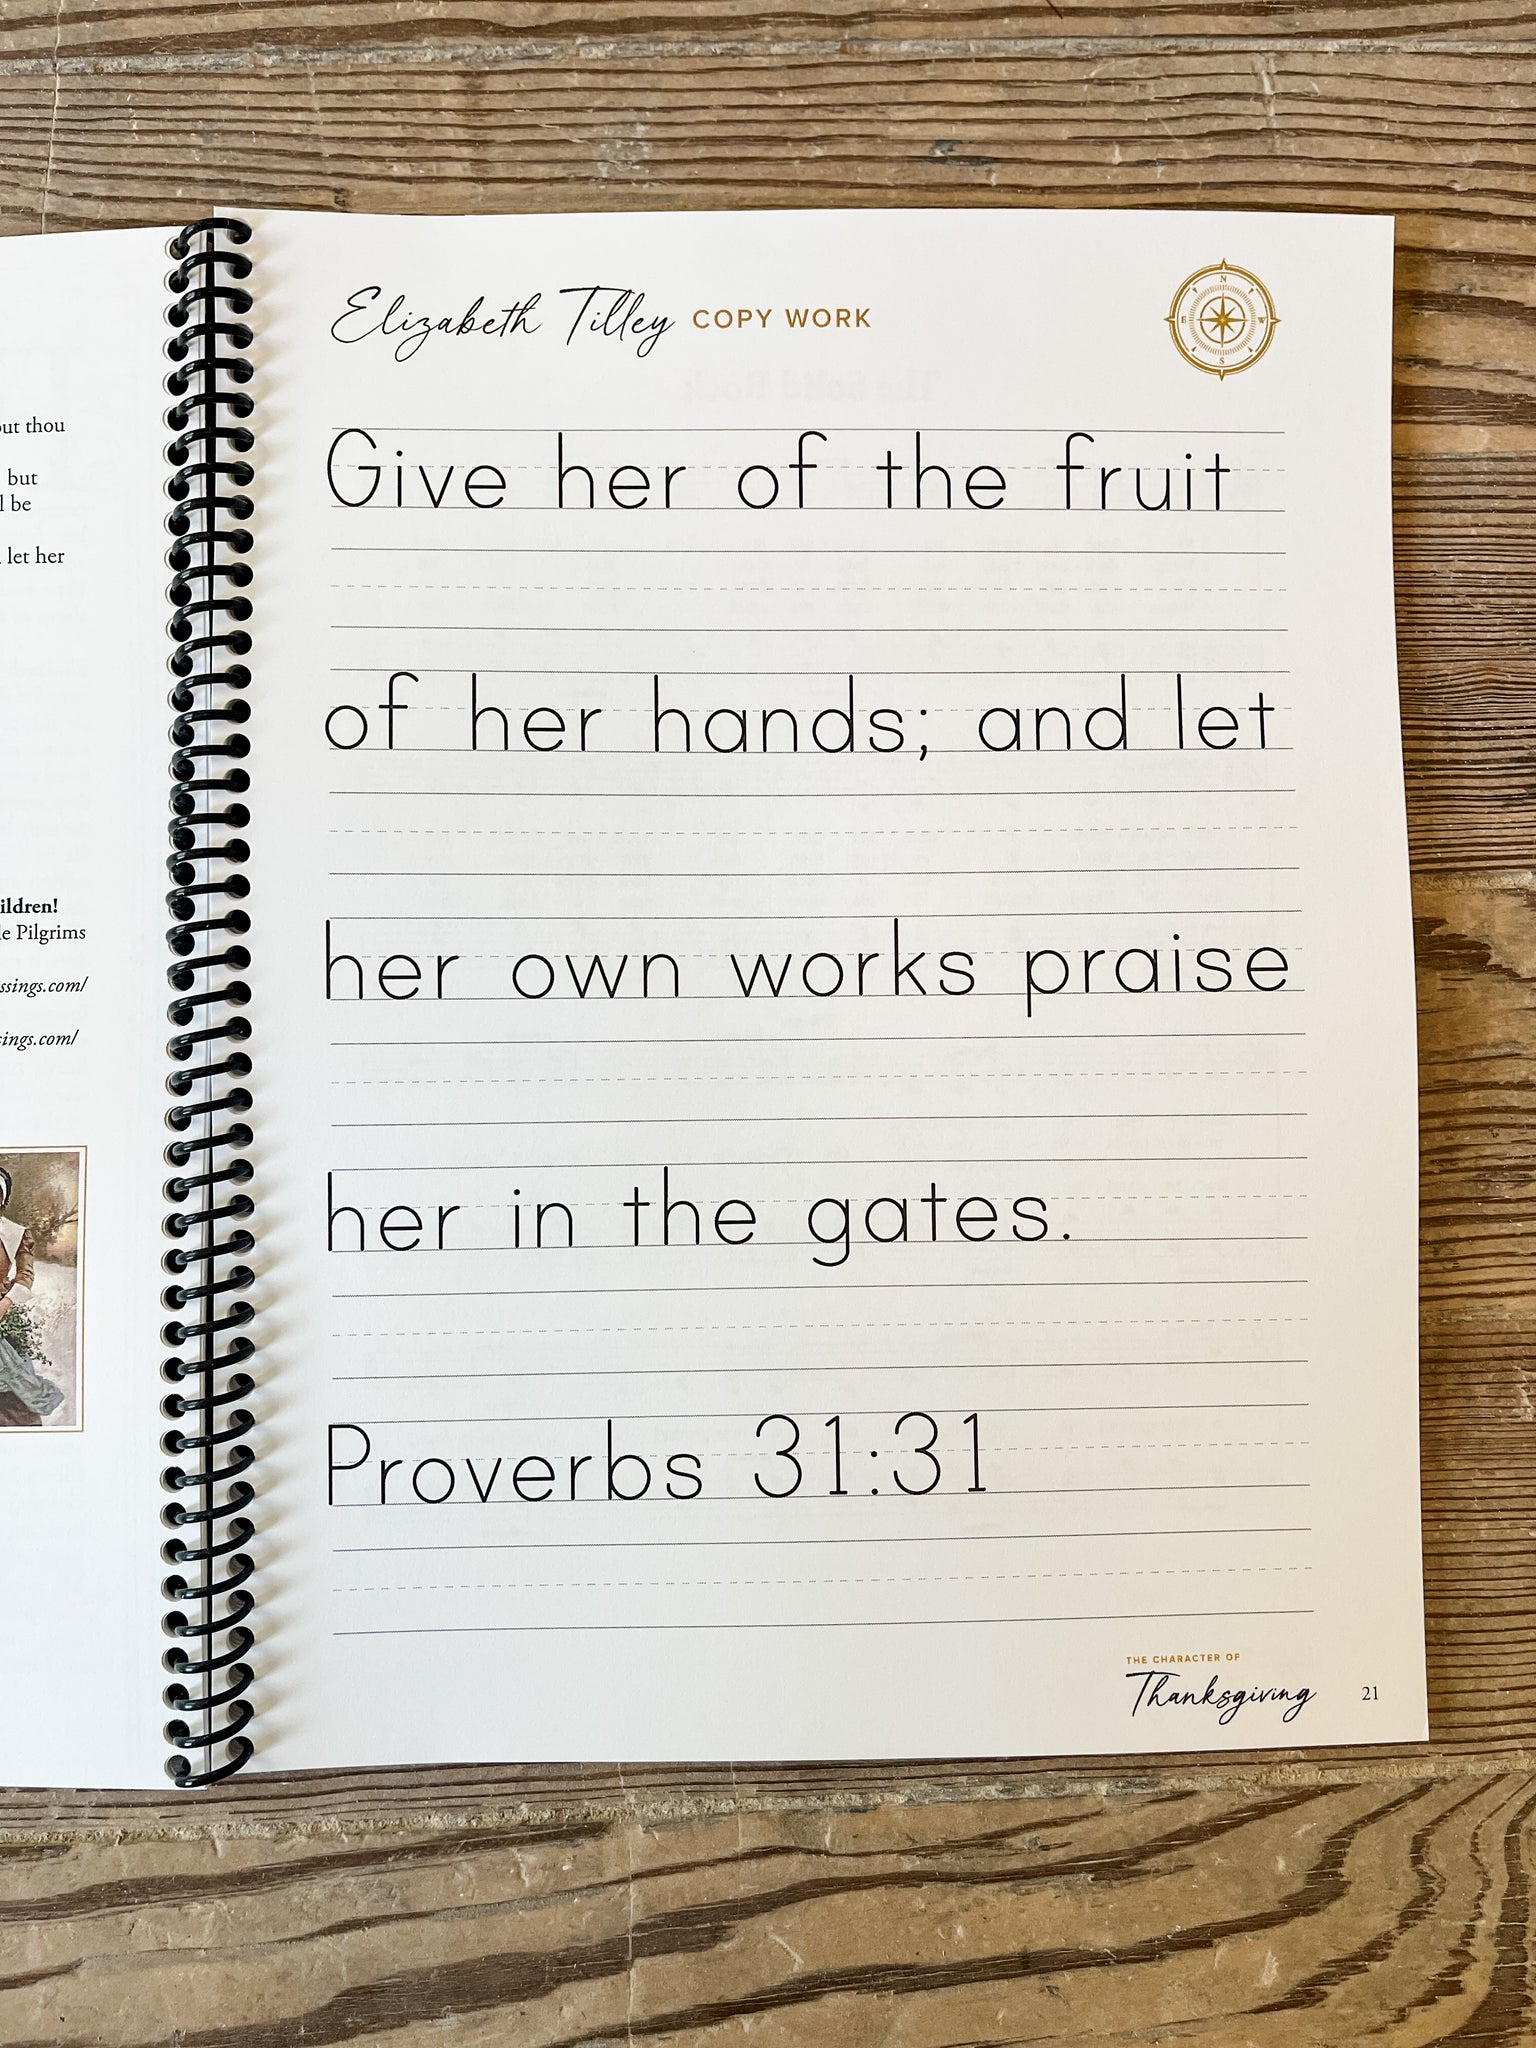 out thou
but
l be
let her
ildren!
le Pilgrims
ssings.com/
sings.com/
Elizabeth Tilley COPY WORK
N
E W
S
Give her of the fruit
of her hands; and let
her own works praise
her in the gates.
Proverbs 31:31
THE CHARACTER OF
Thanksgiving 21